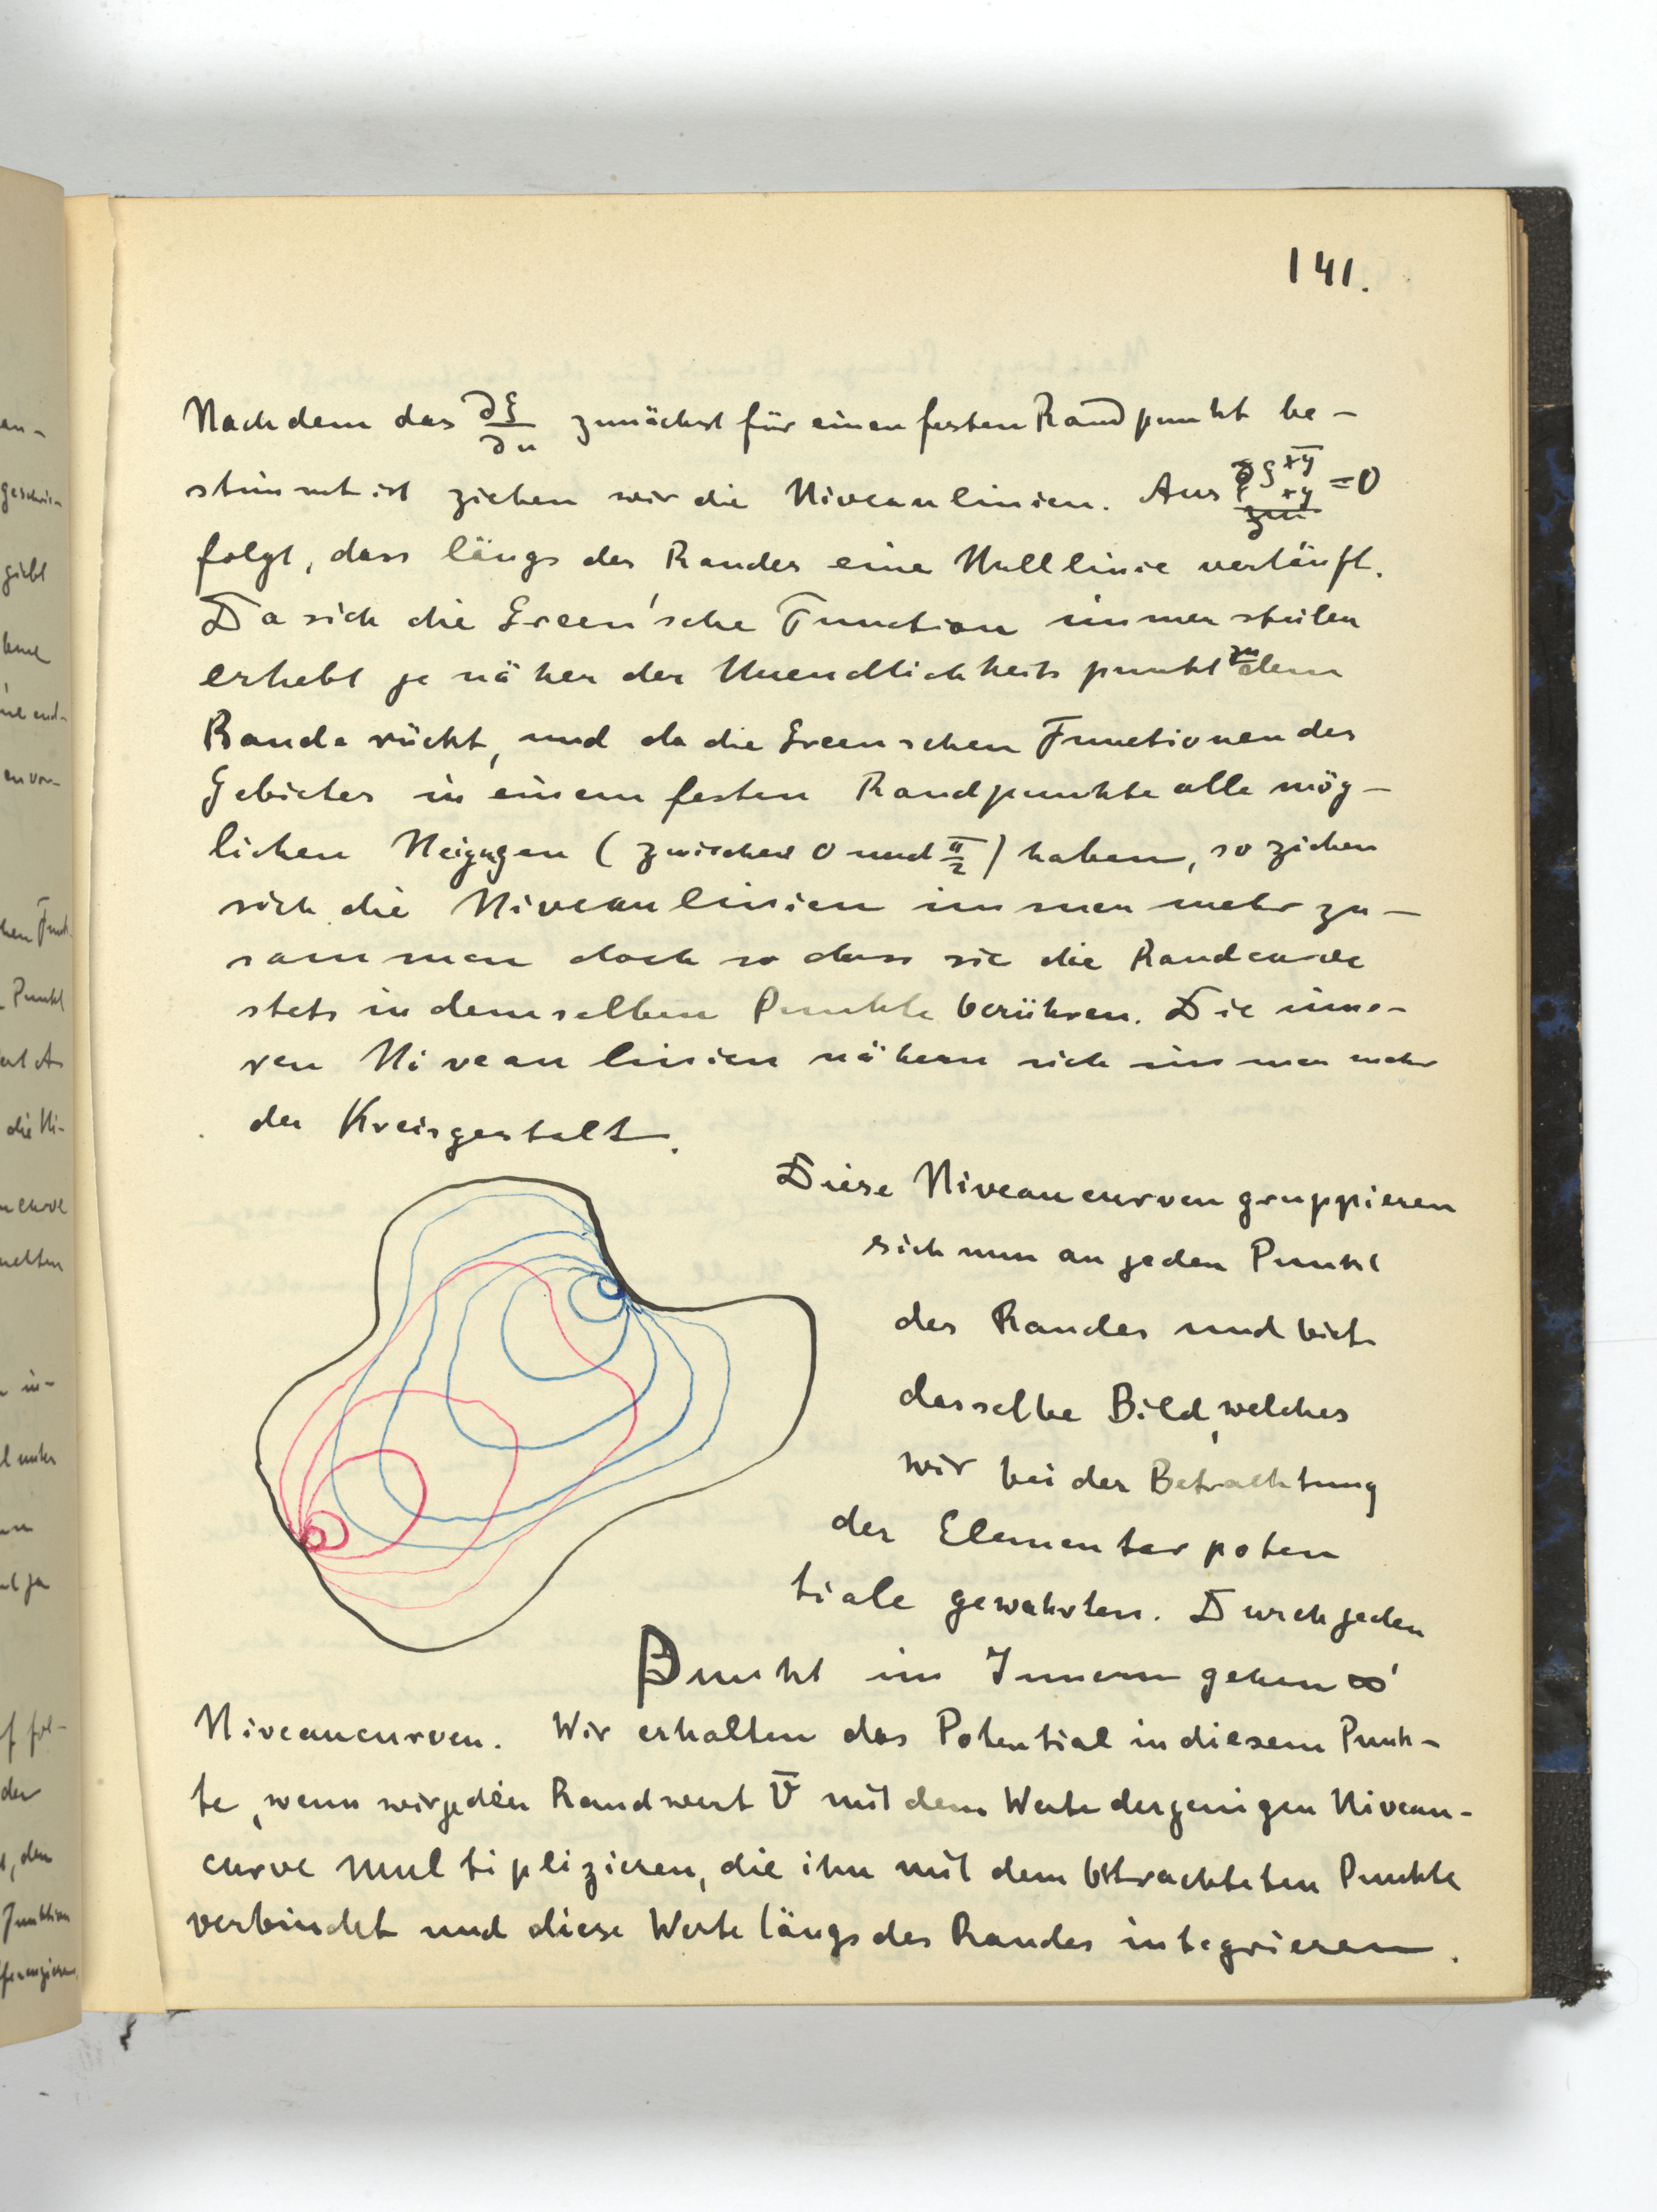 141.
Nachdem das ∂G/∂n zunächst für einen festen Randpunkt be-
stimmt ist ziehen wir die Niveaulinien. Aus = 0
folgt, dass längs des Randes eine Nulllinie verläuft.
Da sich die Green'sche Function immer steiler
erhebt je näher der Unendlichkeitspunkt zu dem
Rande rückt, und da die Greenschen Functionen des
Gebietes in einem festen Randpunkte alle mög-
lichen Neigugen (zwischen 0 und π/2) haben, so ziehen
sich die Niveaulinien immer mehr zu-
sammen doch so dass sie die Randcurve
stets in demselben Punkte berühren. Die inne-
ren Niveaulinien nähern sich immer mehr
der Kreisgestalt.
Diese Niveaucurven gruppieren
sich nun an jeden Punkt
des Randes und biet
dasselbe Bild, welches
wir bei der Betrachtung
der Elementarpoten
tiale gewahrten. Durch jeden
Punkt im Innern gehen ∞¹
Niveaucurven. Wir erhalten das Potential in diesem Punk-
te, wenn wir jeden Randwert V̄ mit dem Werte derjenigen Niveau-
curve multiplizieren, die ihn mit dem betrachteten Punkte
verbindet und diese Werte längs des Randes integrieren.